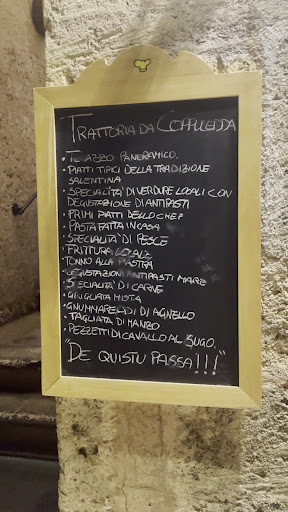 TRATTORIA DA COPPULEDDA
• TERAZZO PANORAMICO.
• PIATTI TIPICI DELLA TRADIZIONE
SALENTINA
• SPECIALITA' DI VERDURE LOCALI CON
DEGUSTAZIONE DI ANTIPASTI
• PRIMI PIATTI DELLO CHEF
• PASTA FATTA IN CASA
• SPECIALITA' DI PESCE
• FRITTURA LOCALE
TONNO ALLA PIASTRA
DEGUSTAZIONI ANTIPASTI MARE
• SPECIALITA' DI CARNE
• GRIGLIATA MISTA
• GNUMMAREDDI DI AGNELLO
• TAGLIATA DI MANZO
• PEZZETTI DI CAVALLO AL SUGO.
"DE QUISTU PASSA!!!"